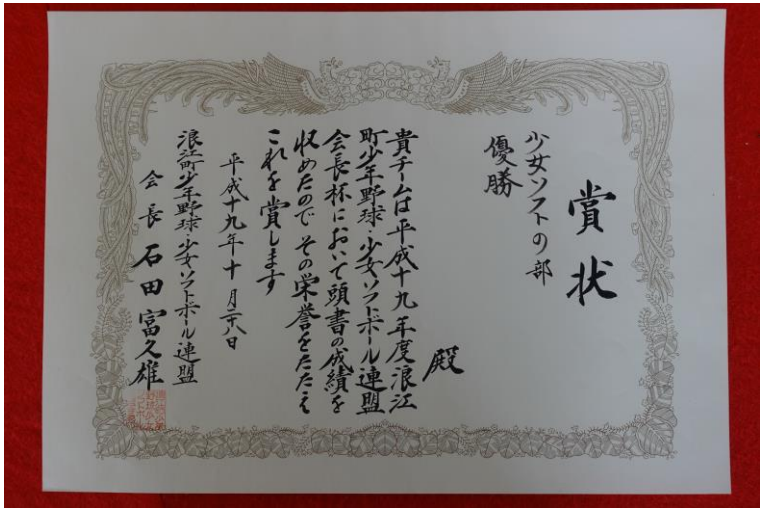 賞状
少女ソフトの部
優勝
殿
貴チームは平成十九年度浪江
町少年野球・少女ソフトボール連盟
会長杯において頭書の成績を
収めたので その栄誉をたたえ
これを賞します
平成十九年十月二八日
浪江町少年野球・少女ソフトボール連盟
会長 石田富久雄